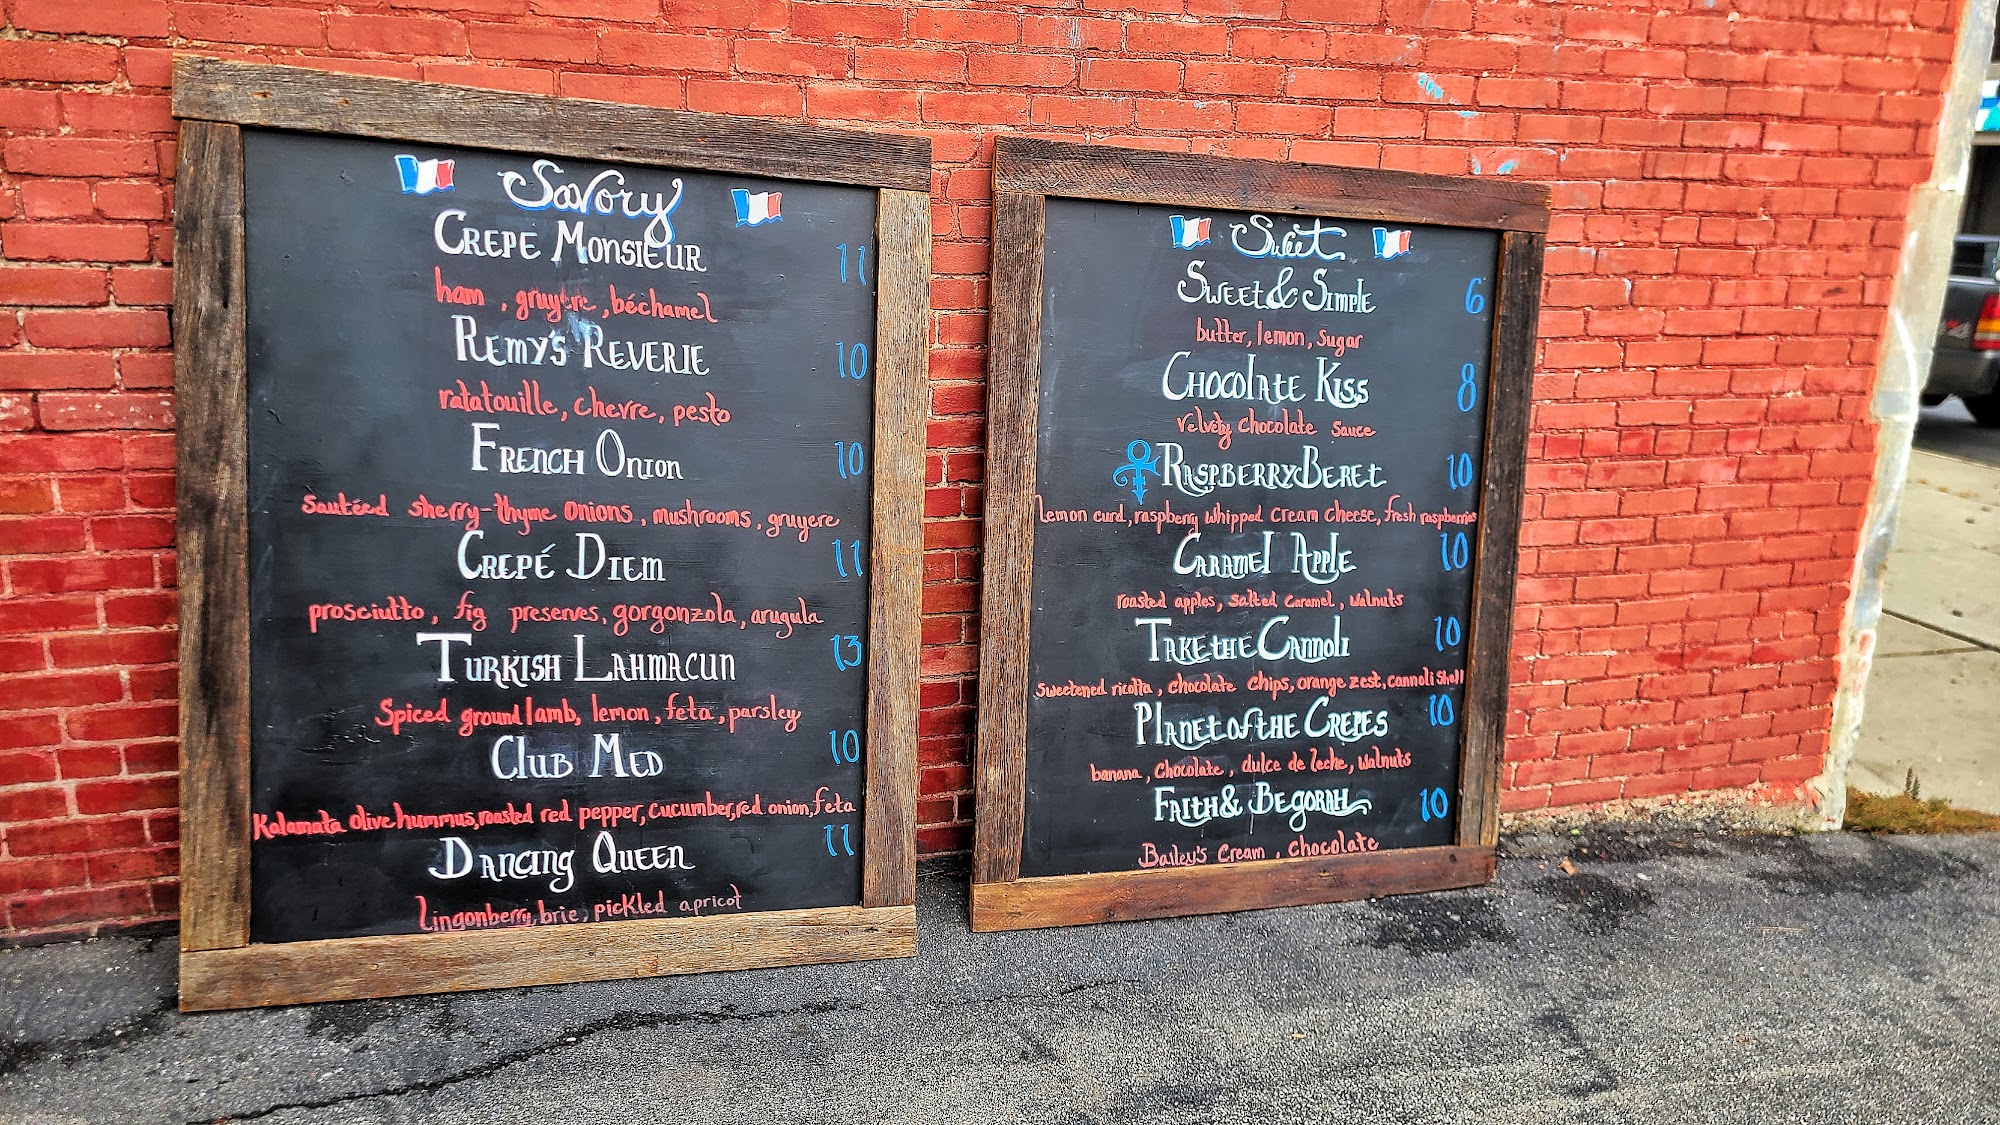 Savory
CREPE MONSIEUR 11
ham, gruyere, béchamel
REMY'S REVERIE 10
ratatouille, chevre, pesto
FRENCH ONION 10
sautéed sherry-thyme onions, mushrooms, gruyere
CREPÉ DIEM 11
prosciutto, fig preserves, gorgonzola, arugula
TURKISH LAHMACUN 13
Spiced ground lamb, lemon, feta, parsley
CLUB MED 10
Kalamata olive hummus, roasted red pepper, cucumber, red onion, feta
DANCING QUEEN 11
Lingonberry, brie, pickled apricot
Sweet
SWEET & SIMPLE 6
butter, lemon, sugar
CHOCOLATE KISS 8
velvety chocolate sauce
RASPBERRY BERET 10
lemon curd, raspberry whipped cream cheese, fresh raspberries
CARAMEL APPLE 10
roasted apples, salted caramel, walnuts
TAKE THE CANNOLI 10
sweetened ricotta, chocolate chips, orange zest, cannoli shell
PLANET OF THE CREPES 10
banana, chocolate, dulce de leche, walnuts
FAITH & BEGORAH 10
Bailey's cream, chocolate